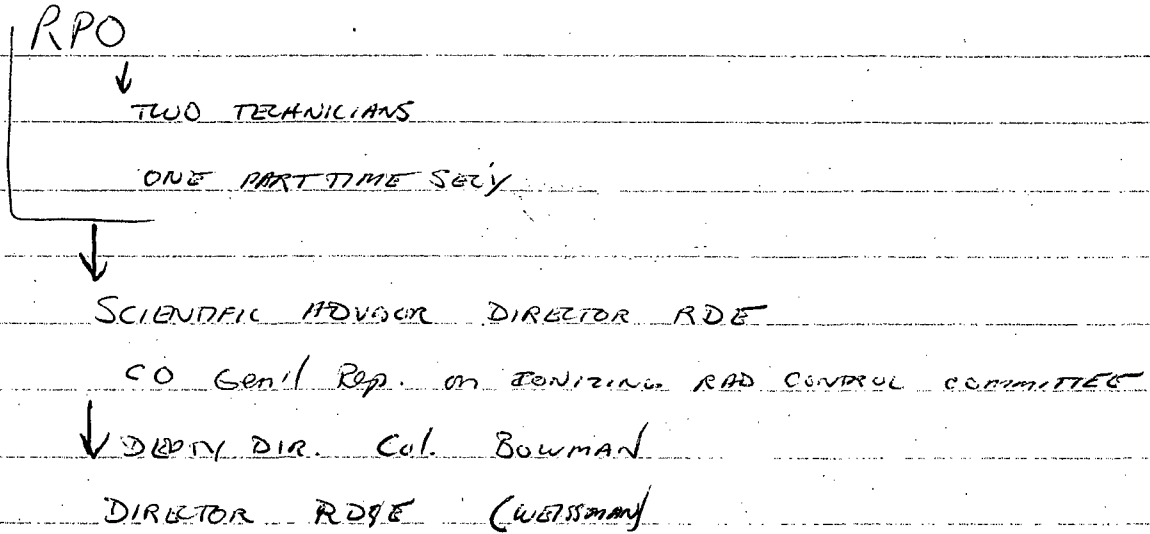 RPO
TWO TECHNICIANS
ONE PART TIME SEC'Y
SCIENTIFIC ADVISOR DIRECTOR RDE
CO Gen'l Rep. on IONIZING RAD CONTROL COMMITTEE
DEPTY DIR. Col. BOWMAN
DIRECTOR RD&E (WEISSMAN)